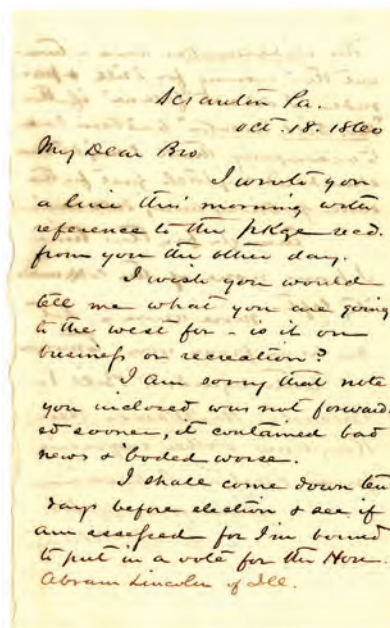 Scranton Pa.
Oct. 18. 1860
My Dear Bro
I wrote you
a line this morning with
reference to the pkge recd.
from you the other day.
I wish you would
tell me what you are going
to the west for - is it on
business or recreation?
I am sorry that note
you inclosed was not forward-
ed sooner, it contained bad
news & boded worse.
I shall come down ten
days before election & see if
am assessed for I'm bound
to put in a vote for the Hon.
Abram Lincoln of Ill.